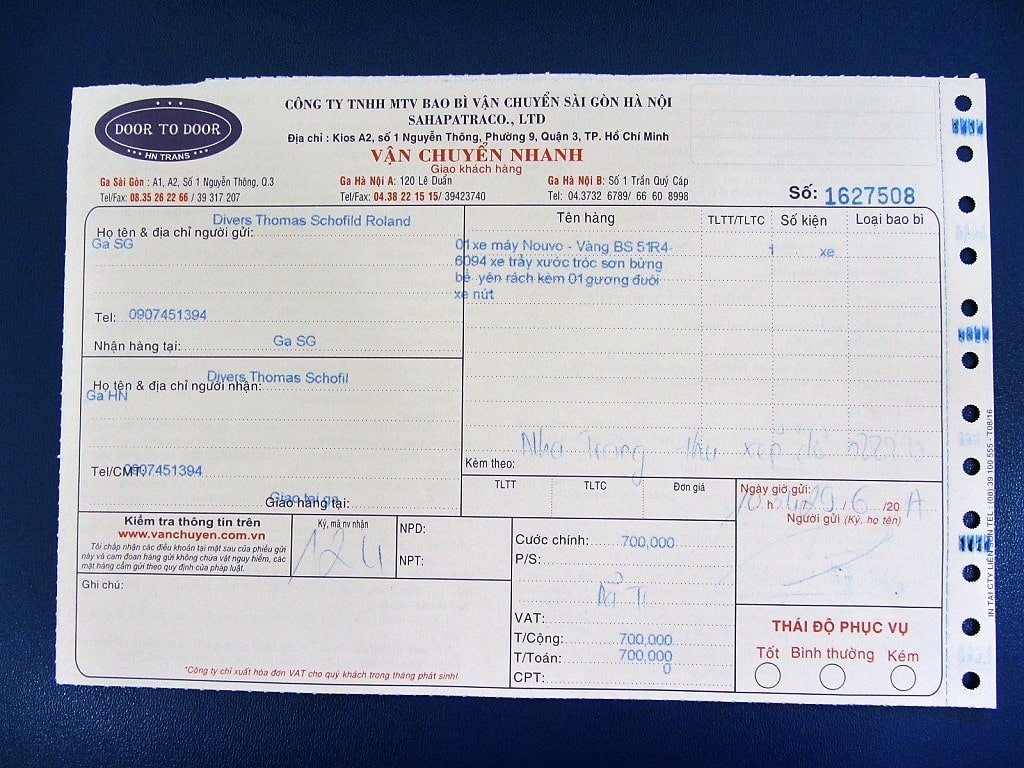 DOOR TO DOOR
••• HN TRANS •••
CÔNG TY TNHH MTV BAO BÌ VẬN CHUYỂN SÀI GÒN HÀ NỘI
SAHAPATRACO., LTD
Địa chỉ : Kios A2, số 1 Nguyễn Thông, Phường 9, Quận 3, TP. Hồ Chí Minh
VẬN CHUYỂN NHANH
Giao khách hàng
Ga Sài Gòn : A1, A2, Số 1 Nguyễn Thông, Q.3
Tel/Fax: 08.35 26 22 66 / 39 317 207
Ga Hà Nội A: 120 Lê Duẩn
Tel/Fax: 04.38 22 15 15/ 39423740
Ga Hà Nội B: Số 1 Trần Quý Cáp
Tel: 04.3732 6789/ 66 60 8998
Số: 1627508
Divers Thomas Schofild Roland
Họ tên & địa chỉ người gửi:
Ga SG
Tel: 0907451394
Nhận hàng tại: Ga SG
Divers Thomas Schofil
Họ tên & địa chỉ người nhận:
Ga HN
Tel/CMT: 0907451394
Giao tai ga
Giao hàng tại:
Tên hàng TLTT/TLTC Số kiện Loại bao bì
01 xe máy Nouvo - Vàng BS 51R4- 1 xe
6094 xe trầy xước tróc sơn bửng
bể yên rách kèm 01 gương đuôi
xe nứt
Nha Trang thu xếp
Kèm theo:
TLTT TLTC Đơn giá
Ngày giờ gửi:
h / /20
Người gửi (Ký, họ tên)
Kiểm tra thông tin trên
www.vanchuyen.com.vn
Tôi chấp nhận các điều khoản tại mặt sau của phiếu gửi
này và cam đoan hàng gửi không chứa vật nguy hiểm, các
mặt hàng cấm gửi theo quy định của pháp luật.
Ký, mã nv nhận
124
NPD:
NPT:
Ghi chú:
*Công ty chỉ xuất hóa đơn VAT cho quý khách trong tháng phát sinh!
Cước chính: 700,000
P/S:
VAT:
T/Cộng: 700,000
T/Toán: 700,000
CPT: 0
THÁI ĐỘ PHỤC VỤ
Tốt Bình thường Kém